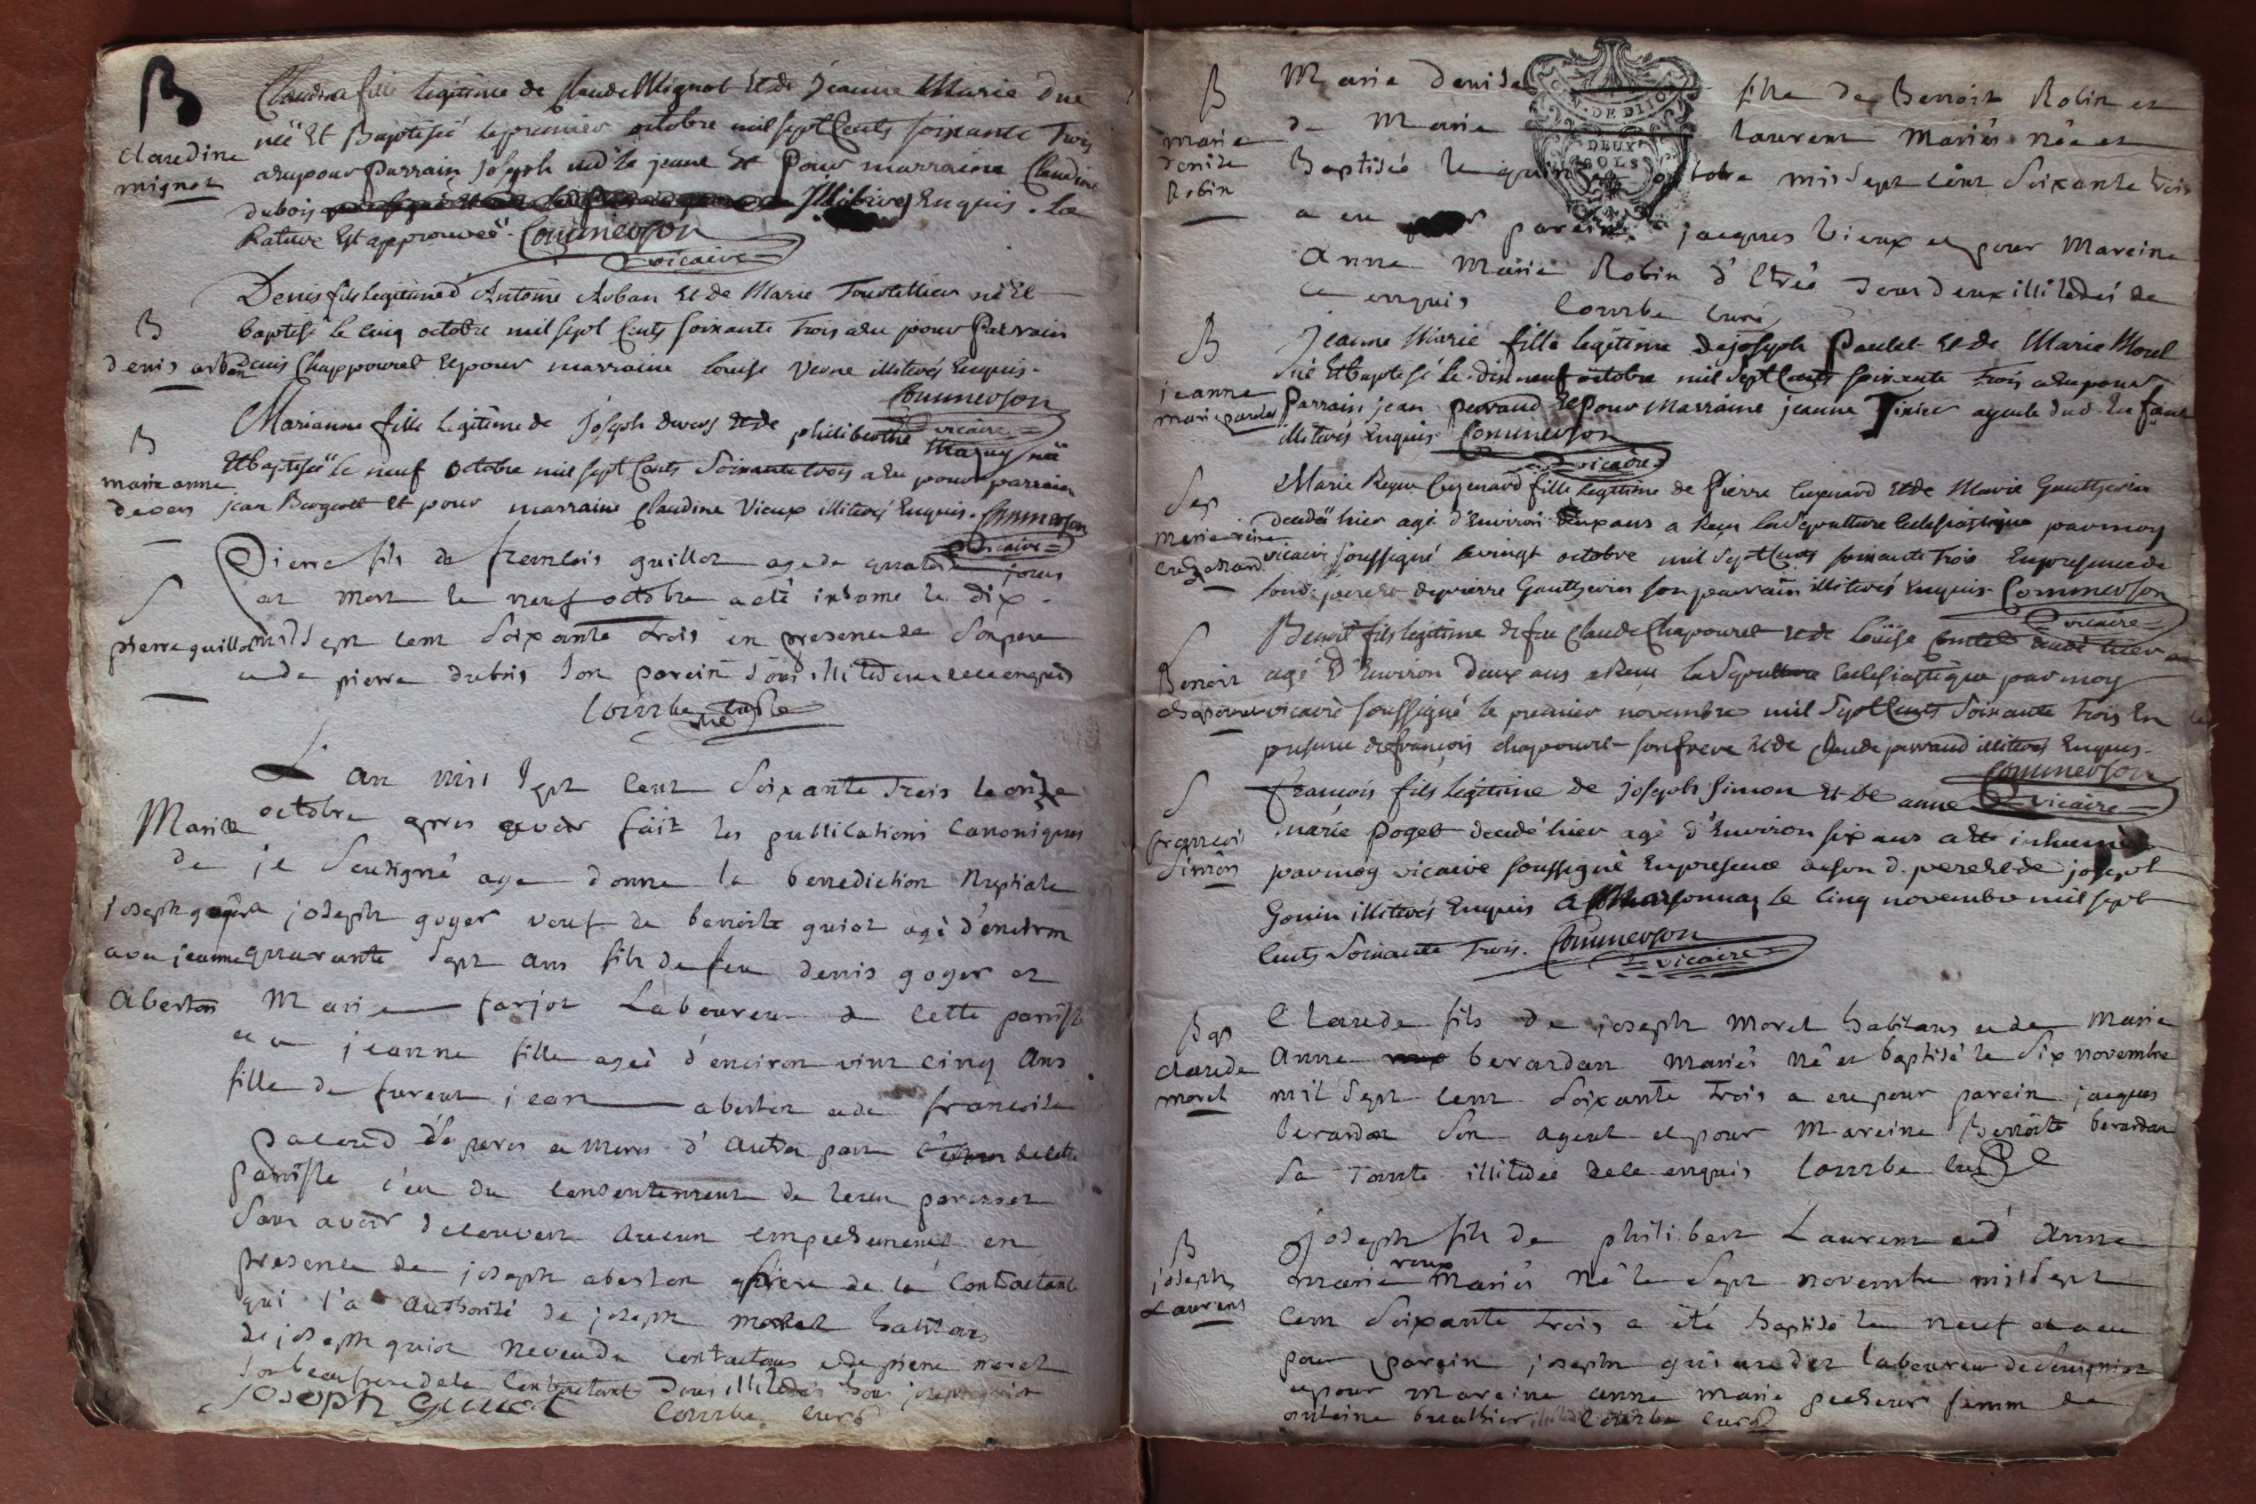 B
claudine
mignot
Claudine fille legitime de Claude Mignot et de jeanne Marie Duc
née Et Baptiséé le premier octobre mil sept Cents soixante Trois
a Eu pour Parrain Joseph le jeune Et Pour marraine Claudine
dubois Illiterés Enquis. La
Rature Est approuveé. Commerson
vicaire
B
denis arban
Denis fils legitime d'Antoine Arban Et de Marie né Et
baptisé le cinq octobre mil sept Cents soixante Trois a Eu pour Parrain
denis Chappouret Et pour marraine louise Verne illiterés Enquis.
Commerson
vicaire
B
marie anne
Marianne fille legitime de Joseph Et de philiberthe née
Et baptiseé le neuf octobre mil sept Cents soixante trois a Eu pour parrain
jean Et pour marraine Claudine Vieux illiterés Enquis. Commerson
vicaire
S
pierre guillot
Pierre fils de francois guillot age de jours
mort le neuf octobre a eté inhume le dix
mil sept cent soixante trois en presence de son pere
et de pierre dubois son parein tous enquis
courbe curé
Mariage
de
joseph goyer
avec jeanne
aberton
L'an mil sept cent soixante trois le onze
octobre apres avoir fait les publications canoniques
je soussigné aye donne la benediction nuptiale
joseph goyer veuf de benoite guiot agé d'environ
quarante sept ans fils de feu denis goyer et
Marie farjot Laboureur de cette parroisse
et a jeanne fille ageé d'environ vint cinq ans
fille de furent jean aberton et de francoise
de peres et meres d'autre part de cette
parroisse c'eu du consentement de leur
sans avoir decouvert aucun empechement en
presence de joseph aberton frere de la contractante
qui l'a authorisé de joseph morel habitans
de joseph guiot neveu de contractans et de pierre morel
son beaufrere de la contractante tous hors joseph guiot
joseph Guiot courbe curé
B
marie
denise
Robin
Marie denise fille de Benoit Robin et
de Marie laurent Mariés née et
baptisée le quinze octobre mil sept cent soixante trois
a eu pour parein jacques Vieux et pour Mareine
Anne Marie Robin tous deux de
ce enquis courbe curé
GEN. DE DIJON
DEUX
SOLS
B
jeanne
marie paulet
Jeanne Marie fille legitime de joseph Paulet Et de Marie Morel
née Et baptisé le dix neuf octobre mil sept Cents soixante Trois a Eu pour
Parrain jean perraud Et pour Marraine jeanne ayeule du d. Enfant
illiterés Enquis Commerson
vicaire
Sep
marie reine
cugnard
Marie Reyne Cugnard fille legitime de Pierre Cugnard Et de Marie Gautherin
decedeé hier agé d'Environ deux ans a Reçu la Sepulture Ecclesiastique par moy
vicaire soussigné le vingt octobre mil sept Cents soixante Trois En presence de
son d. pere Et de pierre Gautherin son parrain illiterés Enquis Commerson
vicaire
Benoit
chapouret
Benoit fils legitime de feu Claude Chapouret Et de Louise decedé hier
agé d'Environ deux ans a Reçu la Sepulture Ecclesiastique par moy
vicaire soussigné le premier novembre mil sept Cents soixante Trois En
presence de françois chapouret son frere Et de Claude perraud illiterés Enquis.
Commerson
vicaire
S
francois
simon
François fils legitime de joseph Simon Et de anne
marie poget decedé hier agé d'Environ six ans a Eté inhumé
par moy vicaire soussigné En presence de son d. pere Et de joseph
Gonin illiterés Enquis a Marsonnay le cinq novembre mil sept
Cents soixante Trois. Commerson
vicaire
Bap
claude
morel
Claude fils de joseph Morel habitans et de Marie
Anne berardan Mariés né et baptisé le six novembre
mil sept cent soixante trois a eu pour parein jacques
berardan son ayeul et pour Mareine Benoite berardan
sa Tante de ce enquis courbe curé
B
joseph
Laurens
joseph fils de philibert Laurent et d'anne
marie roux Mariés né le sept novembre mil sept
cent soixante trois a été baptisé le neuf et a eu
pour parein joseph laboureur de
et pour mareine anne marie pecheur femme de
antoine courbe curé